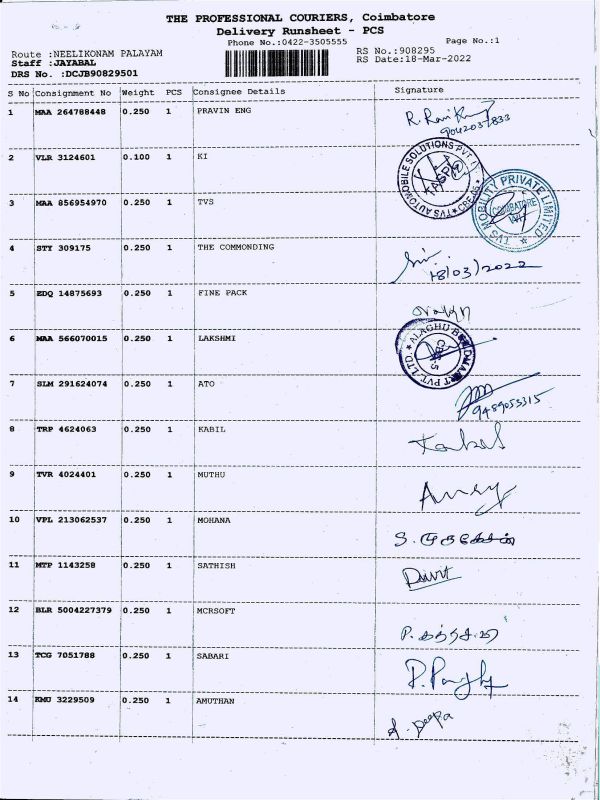 THE PROFESSIONAL COURIERS, Coimbatore
Delivery Runsheet - PCS
Phone No.:0422-3505555
Page No.:1
Route :NEELIKONAM PALAYAM
RS No.:908295
Staff :JAYABAL
RS Date:18-Mar-2022
DRS No. :DCJB90829501
S No Consignment No Weight PCS Consignee Details Signature
1 MAA 264788448 0.250 1 PRAVIN ENG
9042037833
2 VLR 3124601 0.100 1 KI
TVS AUTOMOBILE SOLUTIONS PVT.
3 MAA 856954970 0.250 1 TVS
TVS MOBILITY PRIVATE LIMITED
COIMBATORE
4 STY 309175 0.250 1 THE COMMONDING
18/03/2022
5 EDQ 14875693 0.250 1 FINE PACK
6 MAA 566070015 0.250 1 LAKSHMI
7 SLM 291624074 0.250 1 ATO
9489055315
8 TRP 4624063 0.250 1 KABIL
9 TVR 4024401 0.250 1 MUTHU
10 VPL 213062537 0.250 1 MOHANA
11 MTP 1143258 0.250 1 SATHISH
12 BLR 5004227379 0.250 1 MCRSOFT
13 TCG 7051788 0.250 1 SABARI
14 KMU 3229509 0.250 1 AMUTHAN
Deepa